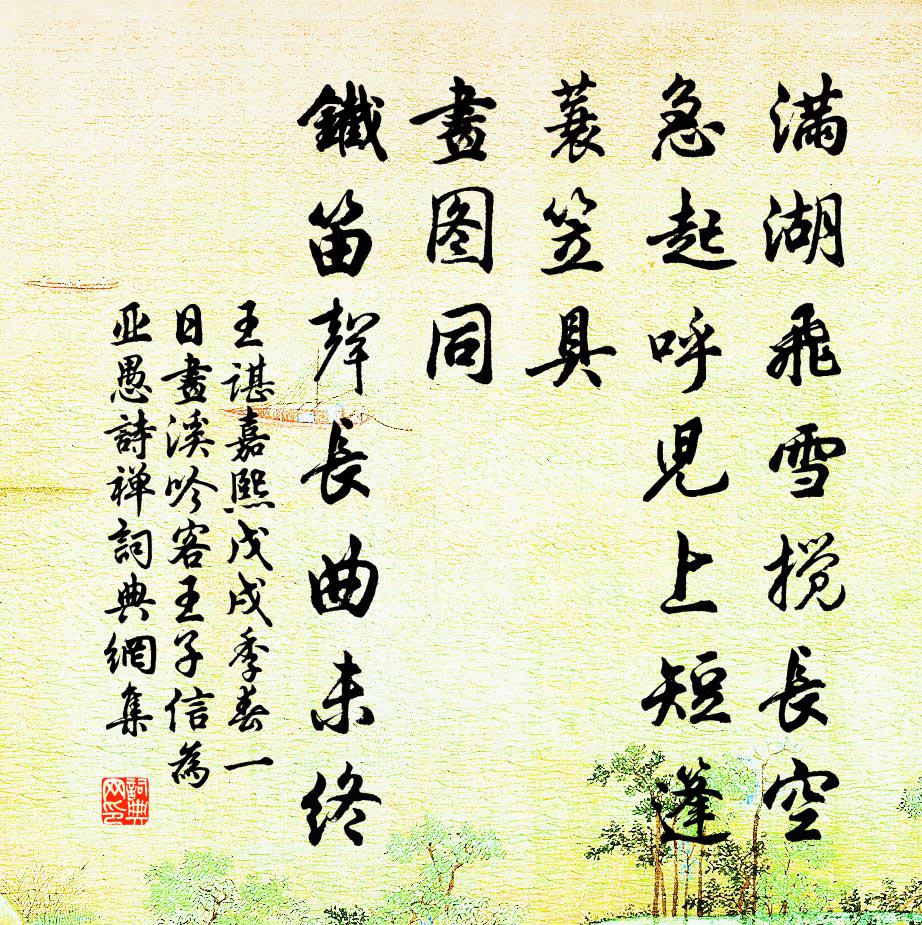 满湖飛雪搅長空
急起呼児上短篷
蓑笠具
畫图同
鐵笛聲長曲未终
王諶嘉熙戊戌季春一
日畫溪吟客王子信為
亚愚詩禅詞典網集
詞典网印